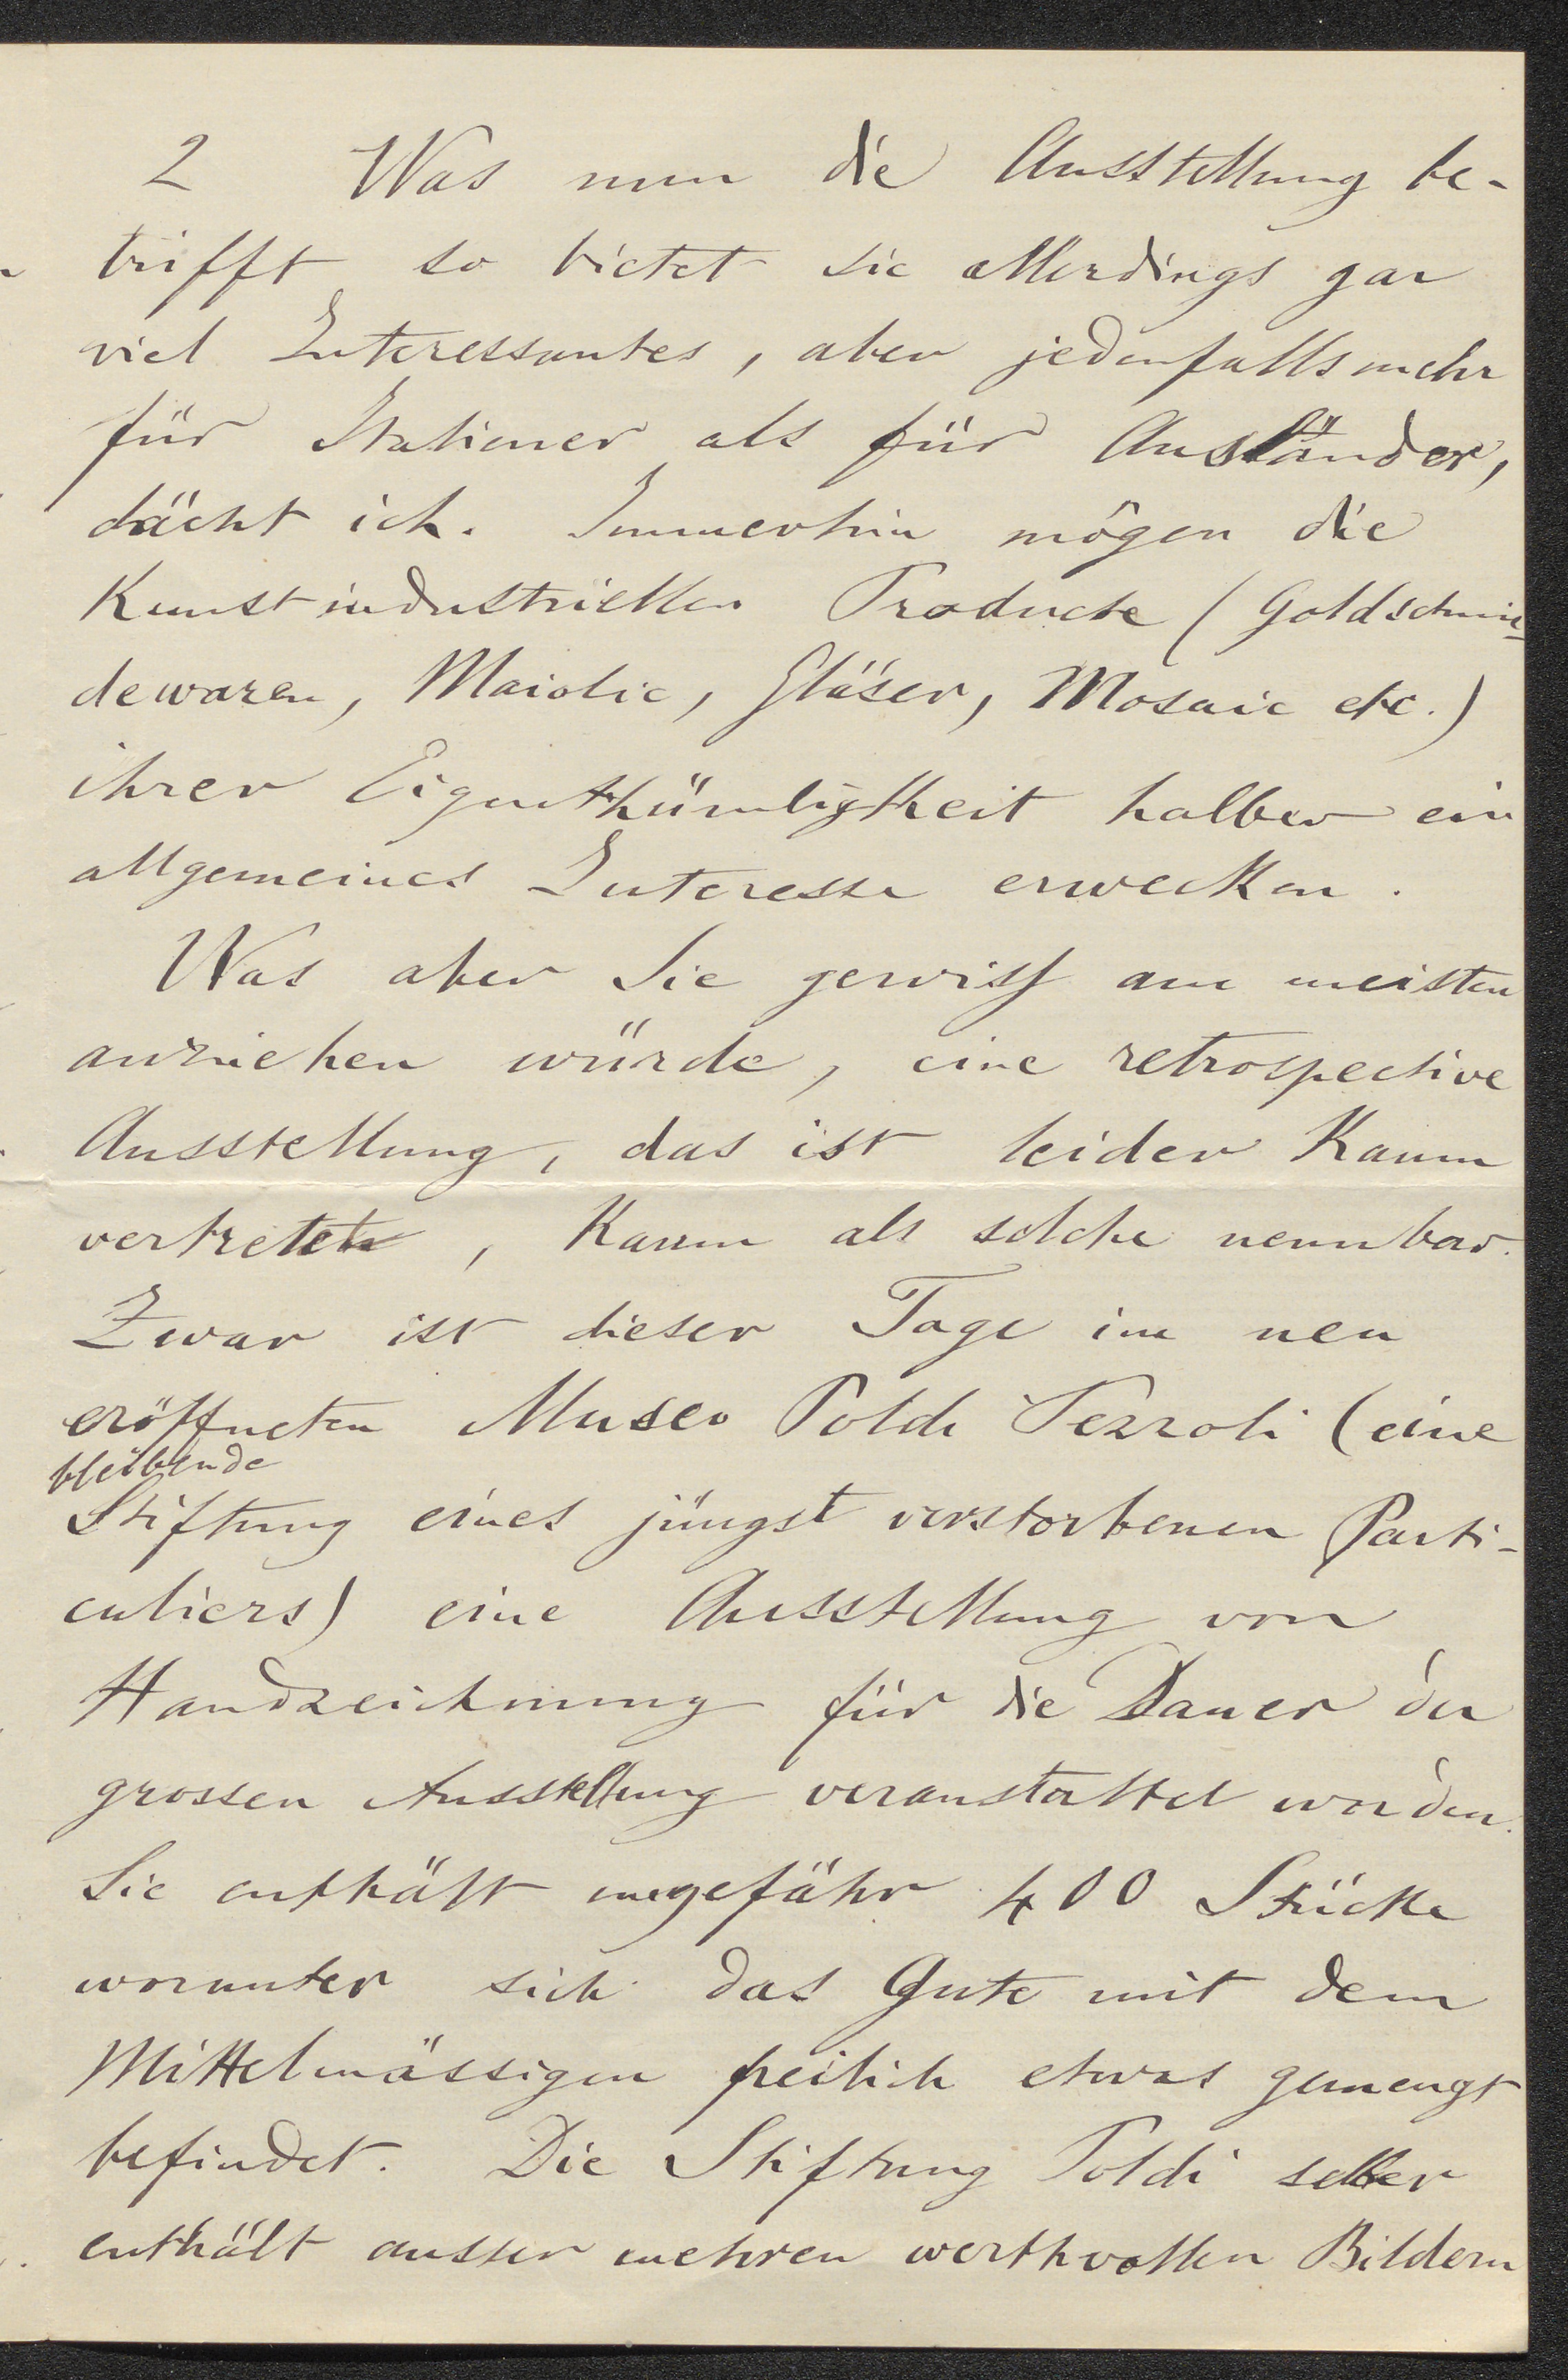 2 Was nun die Ausstellung be-
trifft so bietet sie allerdings gar
viel Interessantes, aber jedenfalls mehr
für Italiener als für Ausländer,
dächt ich. Immerhin mögen die
Kunstindustriellen Producte (Goldschmie-
dewaren, Maiolic, Gläser, Mosaic etc.)
ihrer Eigenthümligkeit halber ein
allgemeines Interesse erwecken.
Was aber Sie gewiss am meisten
anziehen würde, eine retrospective
Ausstellung, das ist leider Kaum
vertreten, Kaum als solche nennbar.
Zwar ist dieser Tage im neu
eröffneten Museo Poldi Pezzoli (eine
bleibende
Stiftung eines jüngst verstorbenen Parti-
culiers) eine Ausstellung von
Handzeichnung für die Dauer der
grossen Ausstellung veranstaltet worden.
Sie enthält ungefähr 400 Stücke
worunter sich das Gute mit dem
Mittelmässigen freilich etwas gemengt
befindet. Die Stiftung Poldi selber
enthält ausser mehren werthvollen Bildern